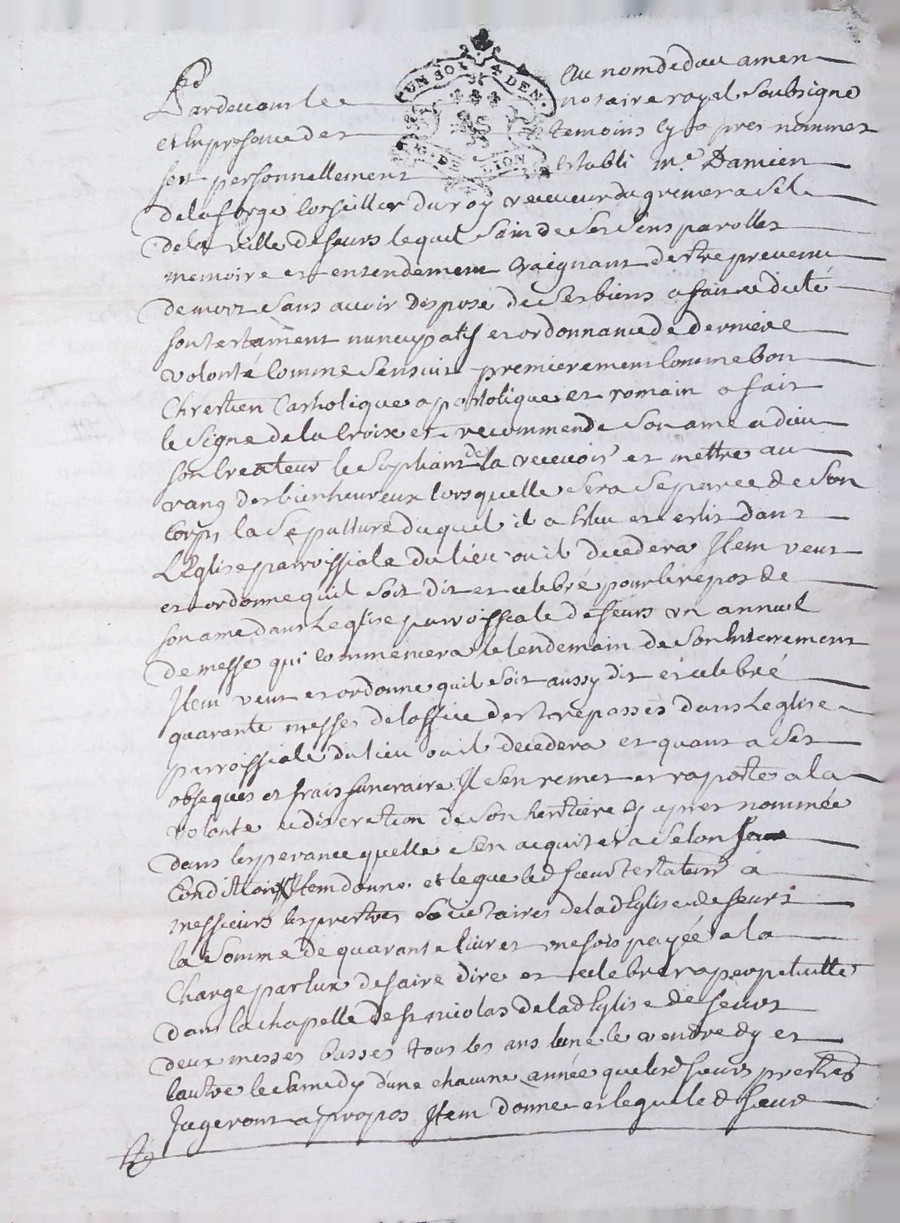 Au nom de dieu amen
UN SOL 4 DEN.
G. DE LION
Pardevant le notaire royal soubsigné
et en presence des temoins cy a pres nommes
fut personnellement establi Me. Damien
delaforge conseiller du roy receveur du grenier a sel
de la ville de feurs lequel sain de ses sens parolles
memoire et entendement craignant destre prevenu
de mort sans avoir disposé de ses biens a fait et dicté
son testament nuncupatif et ordonnance de derniere
volonté comme sensuit premierement comme bon
Chrestien Catholique apostolique et romain a fait
le signe de la Croix et recommende son ame a dieu
son Createur le supliant de la recevoir et mettre au
rang des bienheureux lors quelle sera separée de son
corps la sepulture duquel il a eslu et eslit dans
LEglise parroissiale du lieu ou il decedera Item veut
et ordonne quil soit dit et celebré pour le repos de
son ame dans Leglise parroissiale de feurs un annuel
de messe qui commencera le lendemain de son enterrement
Item veut et ordonne quil soit aussy dit et celebré
quarante messes de loffice des trepassés dans Leglise
parroissiale du lieu ou il decedera et quant a ses
obseques et frais funeraire Il sen remet et raporte a la
volonté et discretion de son heritiere cy apres nommée
dans lesperance quelle sen acquitera selon sa
Condition Item donne et legue led sieur testateur a
messieurs les prestres societaires de lad Eglise de feurs
la somme de quarante livres une fois payée a la
Charge par eux de faire dire et celebrer a perpetuitté
dans la chapelle de st nicolas de lad Eglise de feurs
deux messes basses tous les ans lune le vendredy et
lautre le samedy dune chacune année que lesd sieurs prestres
Jugeront a propos Item donne et legue led sieur